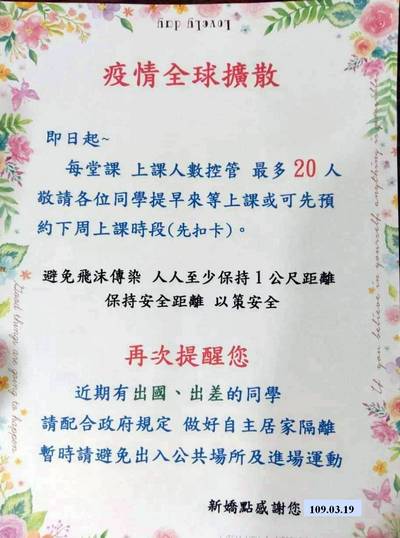 Lovely day
疫情全球擴散
即日起~
每堂課 上課人數控管 最多 20 人
敬請各位同學提早來等上課或可先預
約下周上課時段(先扣卡)。
避免飛沫傳染 人人至少保持1公尺距離
保持安全距離 以策安全
再次提醒您
近期有出國、出差的同學
請配合政府規定 做好自主居家隔離
暫時請避免出入公共場所及進場運動
新嬌點感謝您 109.03.19
Good things are going to happen
If you believe in yourself anything